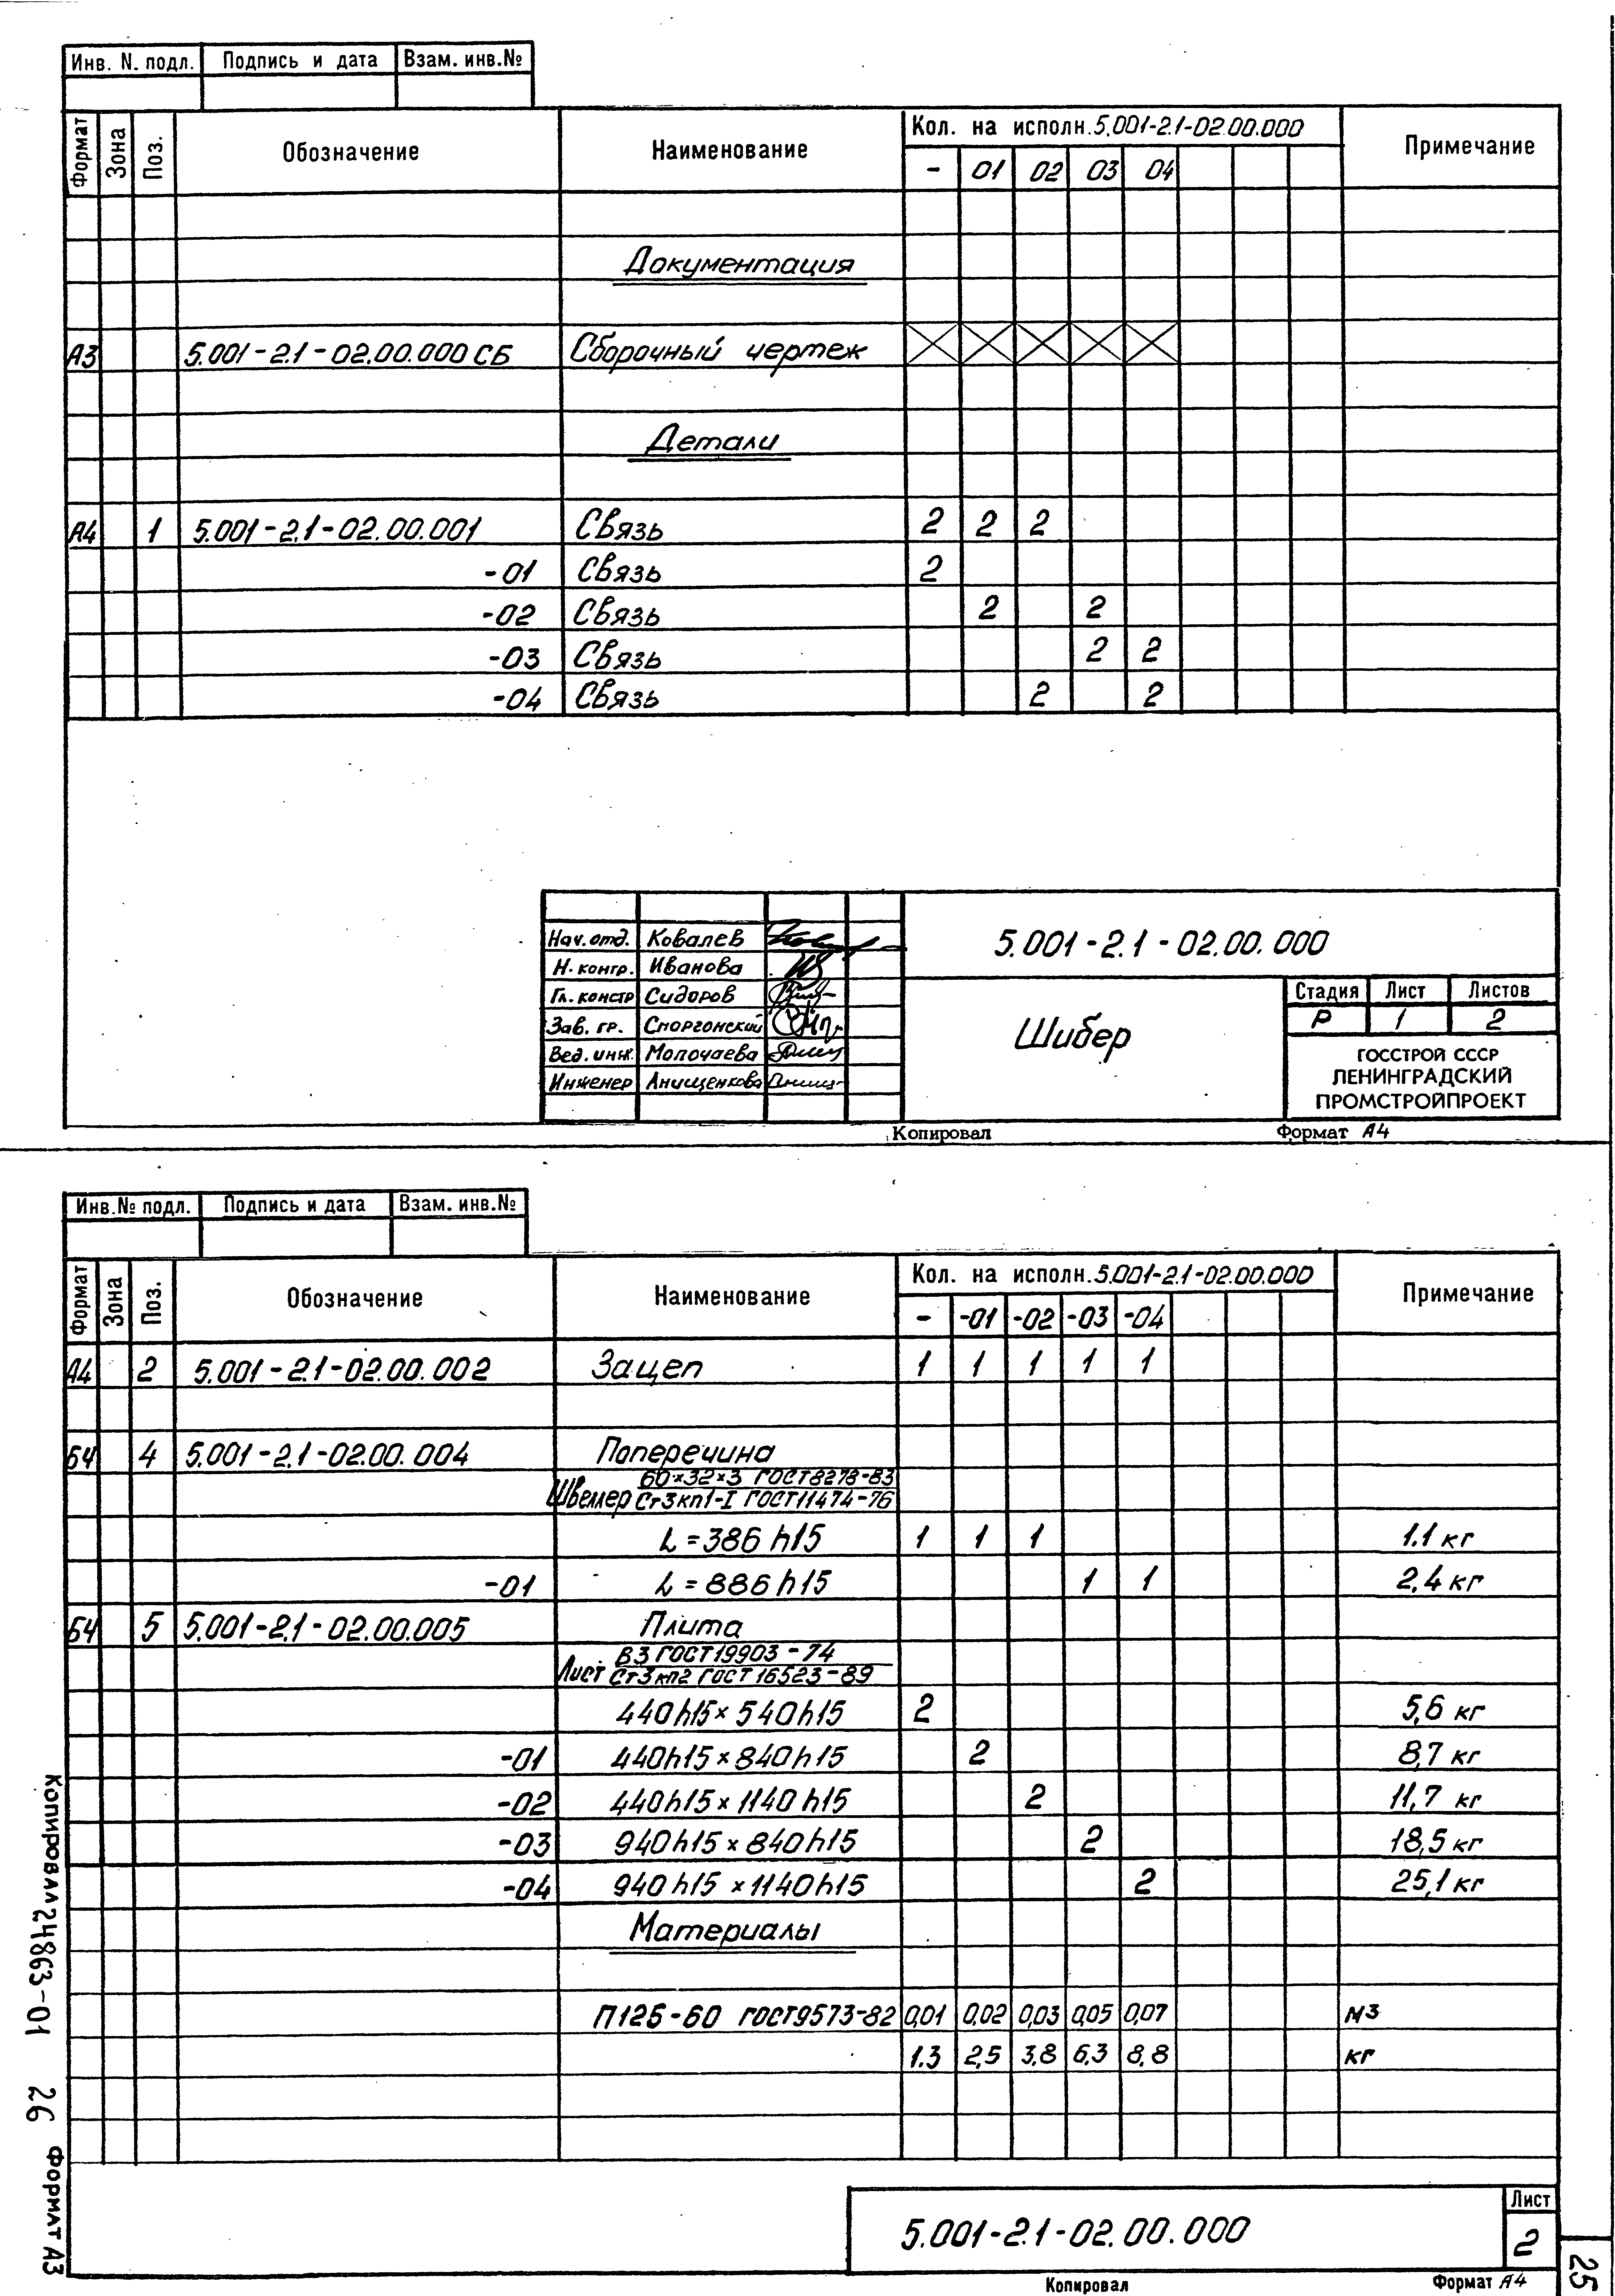 Инв. N. подл. Подпись и дата Взам. инв.№
Формат Зона Поз. Обозначение Наименование Кол. на исполн. 5.001-2.1-02.00.000 Примечание
- 01 02 03 04
Документация
А3 5.001-2.1-02.00.000 СБ Сборочный чертеж
Детали
А4 1 5.001-2.1-02.00.001 Связь 2 2 2
-01 Связь 2
-02 Связь 2 2
-03 Связь 2 2
-04 Связь 2 2
Нач. отд. Ковалев
Н. контр. Иванова
Гл. констр Сидоров
Зав. гр. Споргонский
Вед. инж. Молочаева
Инженер Анищенкова
5.001-2.1-02.00.000
Шибер
Стадия Лист Листов
Р 1 2
ГОССТРОЙ СССР
ЛЕНИНГРАДСКИЙ
ПРОМСТРОЙПРОЕКТ
Копировал Формат А4
Инв.№ подл. Подпись и дата Взам. инв.№
Формат Зона Поз. Обозначение Наименование Кол. на исполн. 5.001-2.1-02.00.000 Примечание
- -01 -02 -03 -04
А4 2 5.001-2.1-02.00.002 Зацеп 1 1 1 1 1
Б4 4 5.001-2.1-02.00.004 Поперечина
60×32×3 ГОСТ 8278-83
Швеллер Ст3кп1-I ГОСТ 11474-76
L = 386 h15 1 1 1 1.1 кг
-01 L = 886 h15 1 1 2,4 кг
Б4 5 5.001-2.1-02.00.005 Плита
В3 ГОСТ 19903-74
Лист Ст3кп2 ГОСТ 16523-89
440h15 × 540h15 2 5,6 кг
-01 440h15 × 840h15 2 8,7 кг
-02 440h15 × 1140h15 2 11,7 кг
-03 940h15 × 840h15 2 18,5 кг
-04 940h15 × 1140h15 2 25,1 кг
Материалы
П125-60 ГОСТ 9573-82 0,01 0,02 0,03 0,05 0,07 м3
1.3 2,5 3,8 6,3 8,8 кг
5.001-2.1-02.00.000
Лист
2
Копировал Формат А4
Копировал 24863-01 26 Формат А3
25